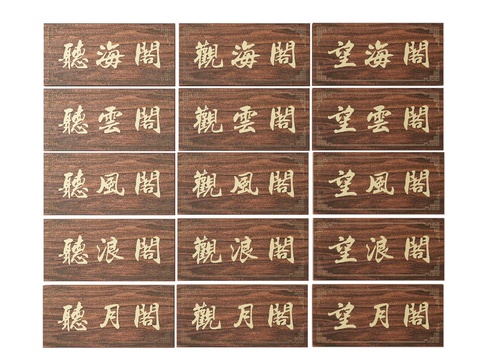 聽海閣 觀海閣 望海閣
聽雲閣 觀雲閣 望雲閣
聽風閣 觀風閣 望風閣
聽浪閣 觀浪閣 望浪閣
聽月閣 觀月閣 望月閣